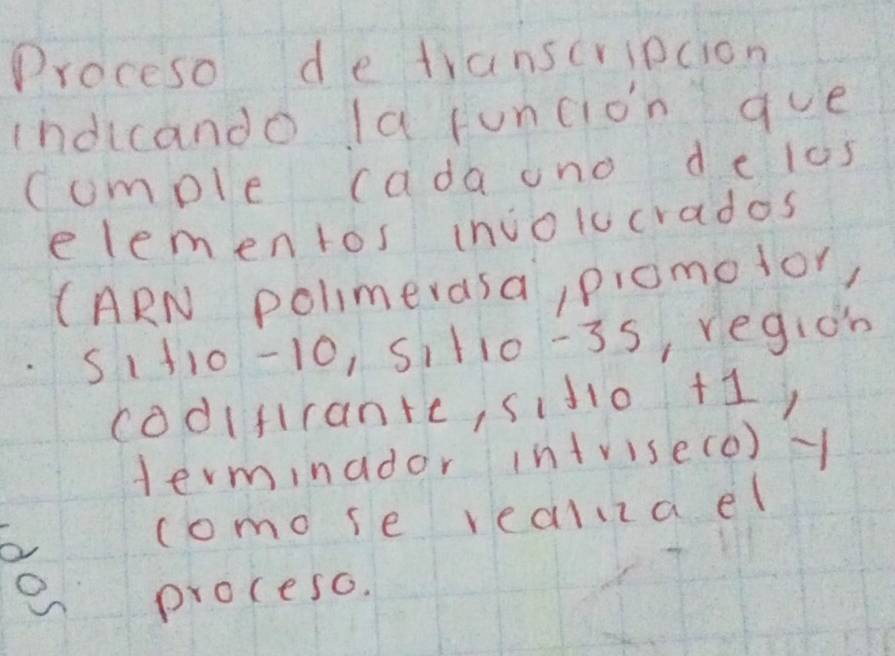 Proceso de transcripcion
indicando la función que
cumple cada uno de los
elementos involucrados
(ARN polimerasa, promotor,
sitio -10, sitio -35, región
codificante, sitio +1,
terminador intriseco) y
como se realiza el
proceso.
dos